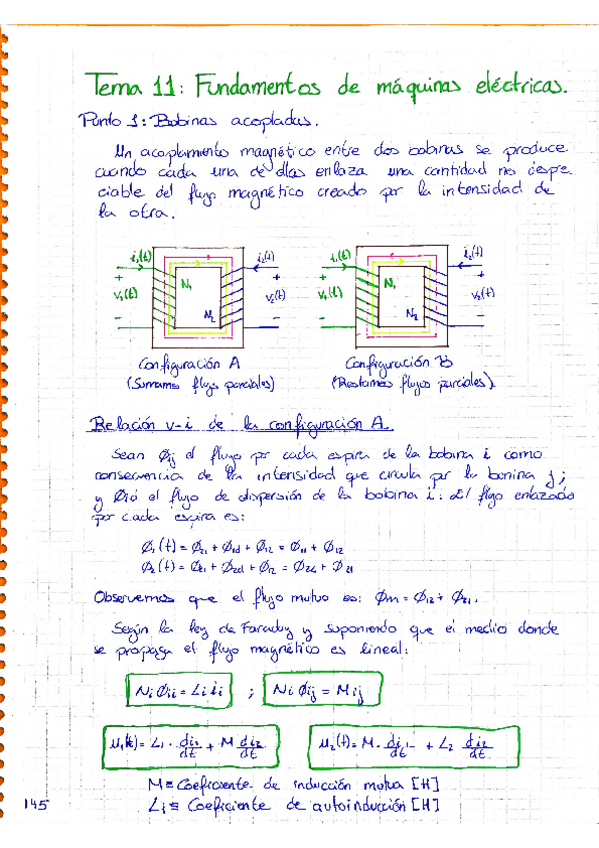 Tema 11: Fundamentos de máquinas eléctricas.
Punto 1: Bobinas acopladas.
Un acoplamiento magnético entre dos bobinas se produce
cuando cada una de ellas enlaza una cantidad no despre
ciable del flujo magnético creado por la intensidad de
la otra.
i₁(t) i₂(t) i₁(t) i₂(t)
+ N₁ + + N₁ +
v₁(t) v₂(t) v₁(t) v₂(t)
- N₂ - - N₂ -
Configuración A Configuración B
(Sumamos flujos parciales) (Restamos flujos parciales).
Relación v-i de la configuración A.
Sean Øij el flujo por cada espira de la bobina i como
consecuencia de la intensidad que circula por la bonina j;
y Øid el flujo de dispersión de la bobina i: El flujo enlazado
por cada espira es:
Ø₁(t) = Ø₂₁ + Ø₁d + Ø₁₂ = Ø₁₁ + Ø₁₂
Ø₂(t) = Ø₂₁ + Ø₂d + Ø₁₂ = Ø₂₂ + Ø₂₁
Observemos que el flujo mutuo es: Øm = Ø₁₂ + Ø₂₁.
Según la ley de Faraday y suponiendo que el medio donde
se propaga el flujo magnético es lineal:
Ni Øii = Li ii ; Ni Øij = Mij
u₁(t) = L₁ · di₁/dt + M di₂/dt u₂(t) = M · di₁/dt + L₂ di₂/dt
M ≡ Coeficiente de inducción mutua [H]
145 Li ≡ Coeficiente de autoinducción [H]